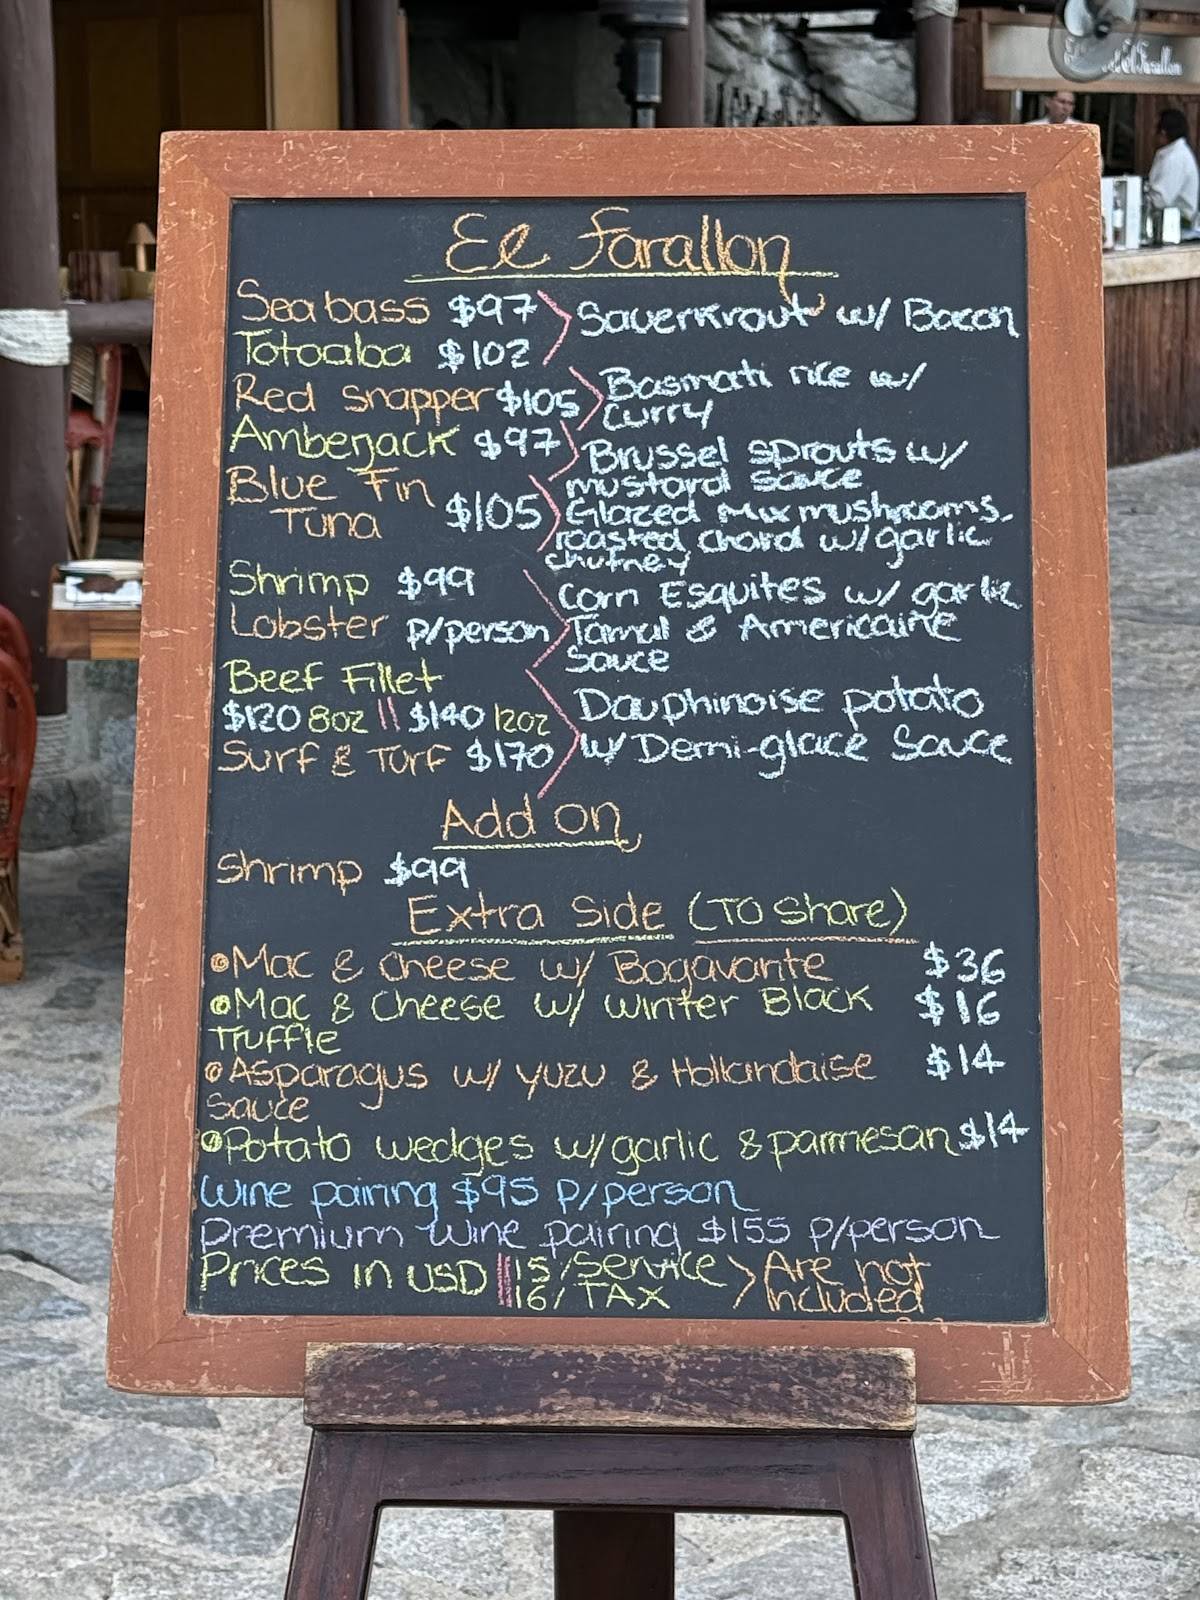 El Farallon
El Farallon
Seabass $97
Totoaba $102
Sauerkrout w/ Bacon
Red snapper $105
Basmati rice w/
curry
Amberjack $97
Brussel sprouts w/
mustard sauce
Blue Fin
Tuna $105
Glazed mix mushrooms.
roasted chard w/garlic
chutney
Shrimp $99
Lobster p/person
Corn Esquites w/ garlic
Tamal & Americaine
Sauce
Beef Fillet
$120 8oz || $140 12oz
Surf & Turf $170
Dauphinoise potato
w/ Demi-glace Sauce
Add on
Shrimp $99
Extra Side (To share)
Mac & cheese w/ Bogavante $36
Mac & Cheese w/ Winter Black $16
Truffle
Asparagus w/ yuzu & Hollandaise $14
Sauce
Potato wedges w/garlic & parmesan $14
Wine pairing $95 p/person
Premium wine pairing $155 p/person
Prices in USD || 15/Service > Are not
16/ TAX Included